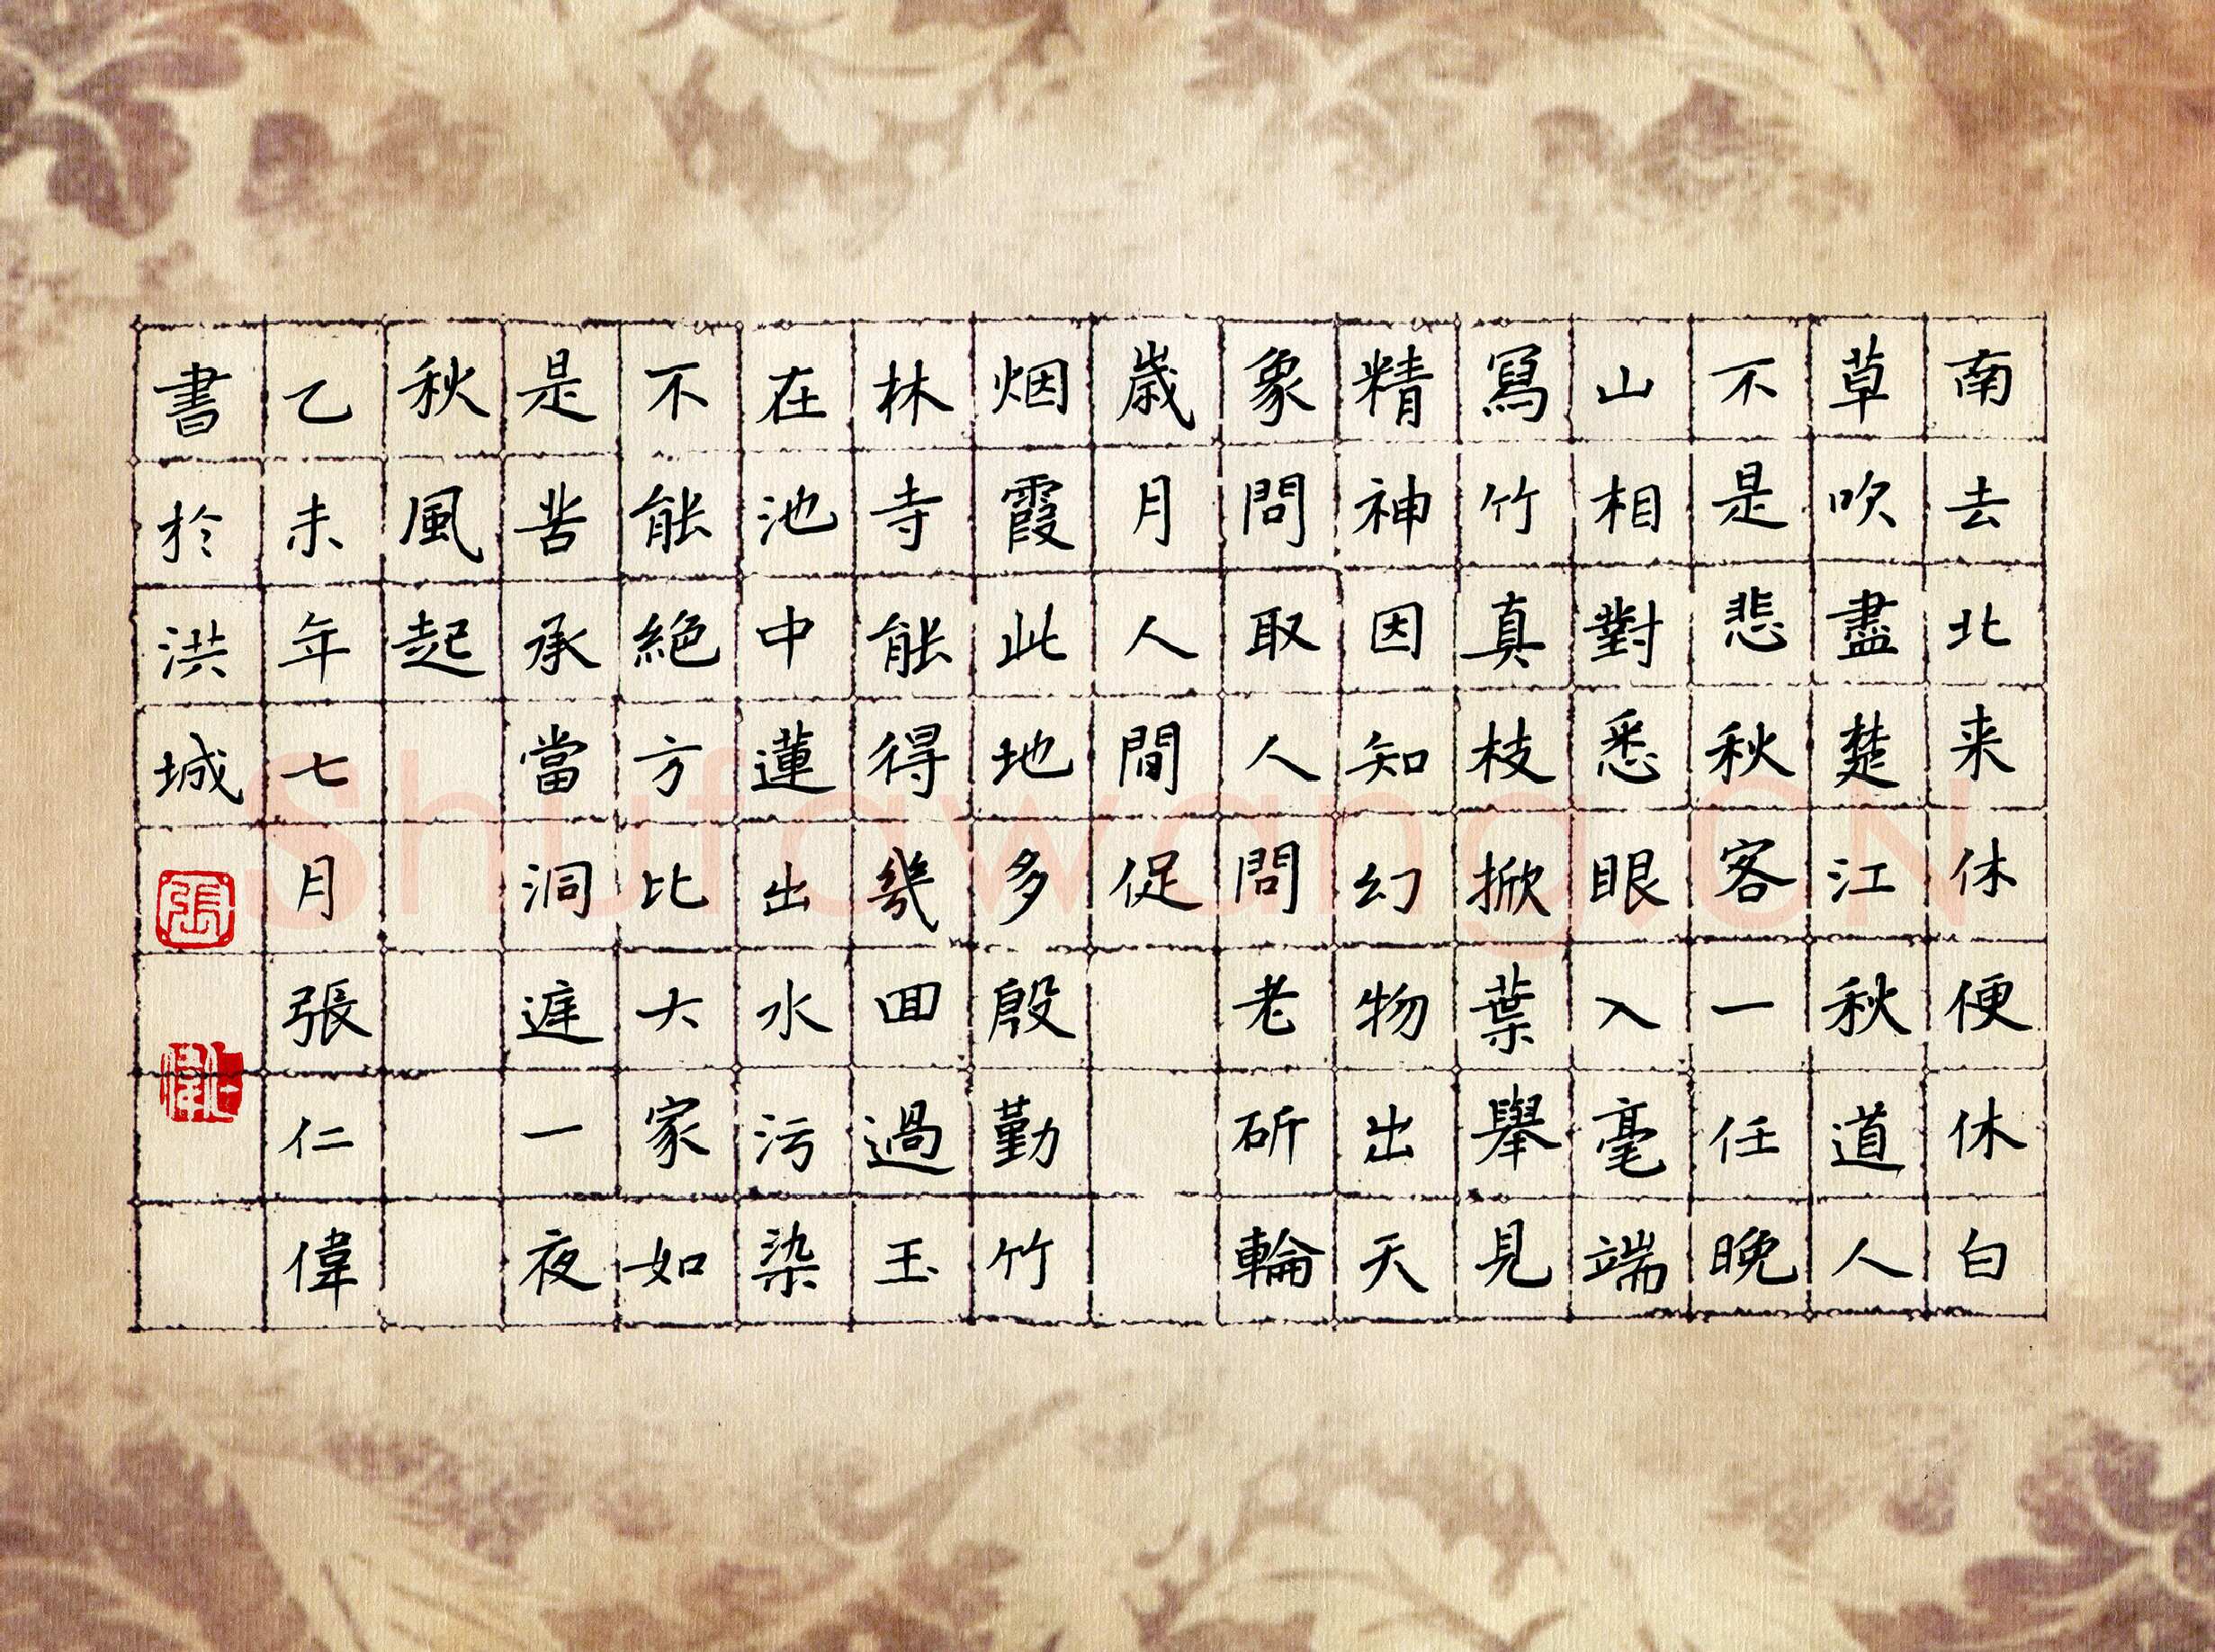 南去北来休便休白
草吹盡楚江秋道人
不是悲秋客一任晚
山相對悉眼入毫端
寫竹真枝掀葉舉見
精神因知幻物出天
象問取人間老斫輪
歲月人間促
烟霞此地多殷勤竹
林寺能得幾回過玉
在池中蓮出水污染
不能絕方比大家如
是苦承當洞遅一夜
秋風起
乙未年七月張仁偉
書於洪城
張
shufawang.CN